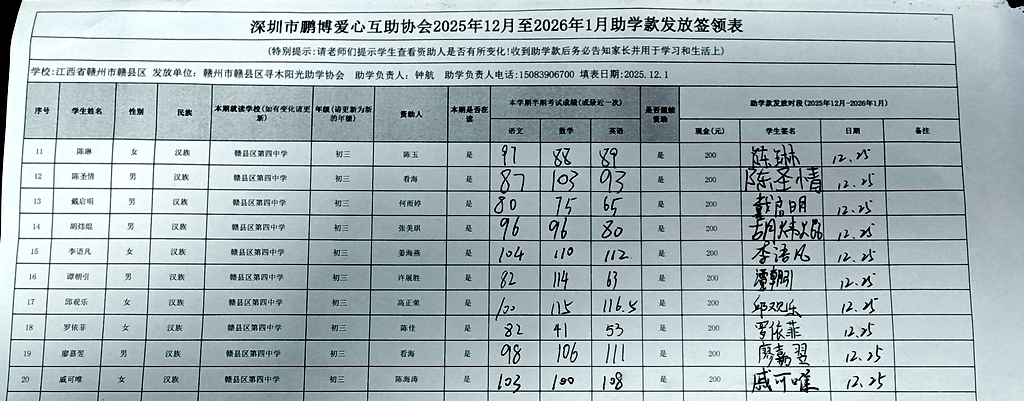 深圳市鹏博爱心互助协会2025年12月至2026年1月助学款发放签领表
(特别提示:请老师们提示学生查看资助人是否有所变化!收到助学款后务必告知家长并用于学习和生活上)
学校:江西省赣州市赣县区 发放单位: 赣州市赣县区寻木阳光助学协会 助学负责人: 钟航 助学负责人电话:15083906700 填表日期:2025.12.1
序号 学生姓名 性别 民族 本期就读学校(如有变化请更新) 年级(请更新为新的年级) 资助人 本期是否在读 本学期半期考试成绩(或最近一次) 是否继续资助 助学款发放时段(2025年12月-2026年1月)
语文 数学 英语 现金(元) 学生签名 日期 备注
11 陈琳 女 汉族 赣县区第四中学 初三 陈玉 是 97 88 89 是 200 陈琳 12.25
12 陈圣情 男 汉族 赣县区第四中学 初三 看海 是 87 103 93 是 200 陈圣情 12.25
13 戴启明 男 汉族 赣县区第四中学 初三 何雨婷 是 80 75 65 是 200 戴启明 12.25
14 胡炜焜 男 汉族 赣县区第四中学 初三 张美琪 是 96 96 80 是 200 12.25
15 李语凡 女 汉族 赣县区第四中学 初三 姜海燕 是 104 110 112 是 200 李语凡 12.25
16 谭朝引 男 汉族 赣县区第四中学 初三 许展胜 是 82 114 63 是 200 谭朝引 12.25
17 邱观乐 女 汉族 赣县区第四中学 初三 高正荣 是 100 115 116.5 是 200 邱观乐 12.25
18 罗依菲 女 汉族 赣县区第四中学 初三 陈佳 是 82 41 53 是 200 罗依菲 12.25
19 廖嘉翌 男 汉族 赣县区第四中学 初三 看海 是 98 106 111 是 200 廖嘉翌 12.25
20 戚可唯 女 汉族 赣县区第四中学 初三 陈海涛 是 103 100 108 是 200 戚可唯 12.25